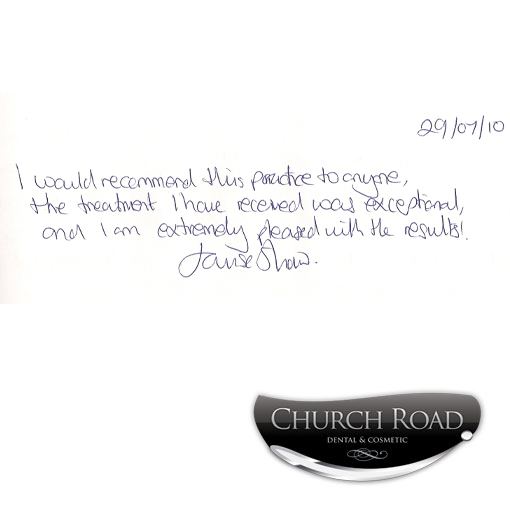 29/07/10
I would recommend this practice to anyone,
the treatment I have received was exceptional,
and I am extremely pleased with the results!
Shaw.
CHURCH ROAD
DENTAL & COSMETIC